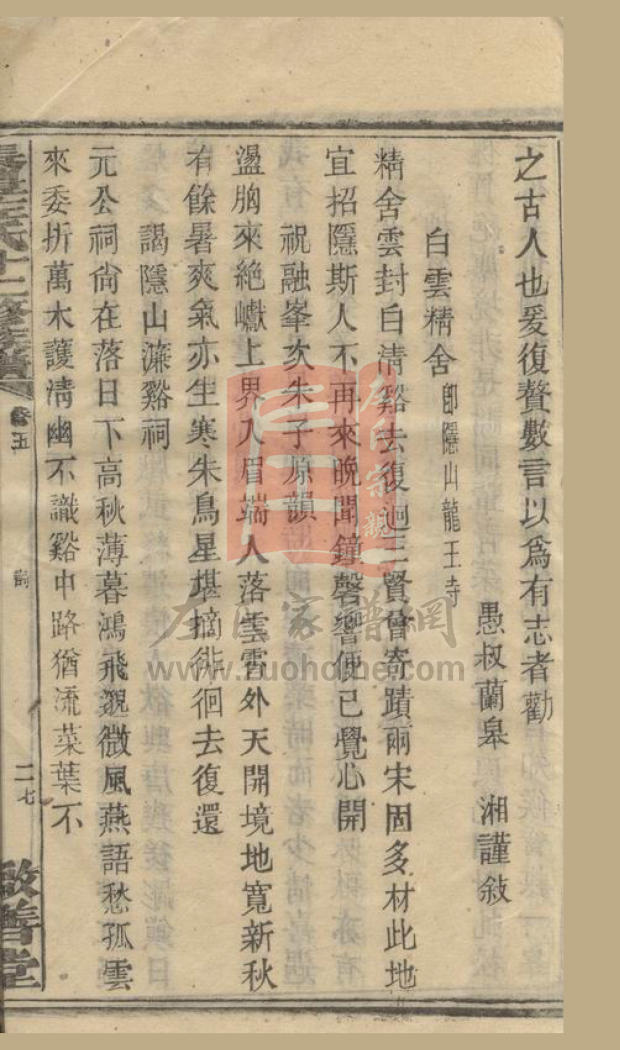 之古人也爰復贅數言以爲有志者勸
愚叔蘭皋　湘謹敍
白雲精舍卽隱山龍王寺
精舍雲封白淸谿去復迴三賢曾寄蹟兩宋固多材此地
宜招隱斯人不再來晚聞鐘磬響便已覺心開
祝融峯次朱子原韻
盪胸來絶巘上界入眉端人落雲霄外天開境地寬新秋
有餘暑爽氣亦生寒朱鳥星堪摘徘徊去復還
謁隱山濂谿祠
元公祠尙在落日下高秋薄暮鴻飛邈微風燕語愁孤雲
來委折萬木護淸幽不識谿中路猶流菜葉不
左氏十二修族譜
卷五
詩
二七
啟善堂
左氏宗親
左氏家譜網
www.zuohome.com